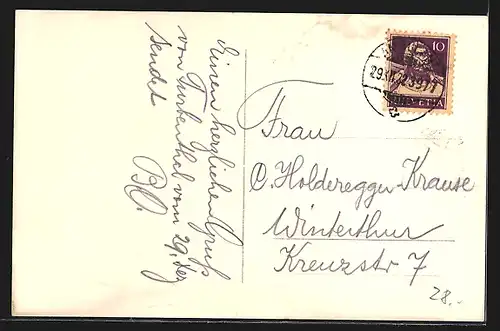 Einen herzlichen Gruß
von Turbenthal vom 29. Dez
sendet
10
HELVETIA
Frau
C. Holderegger-Krause
Winterthur
Kreuzstr 7
28.-